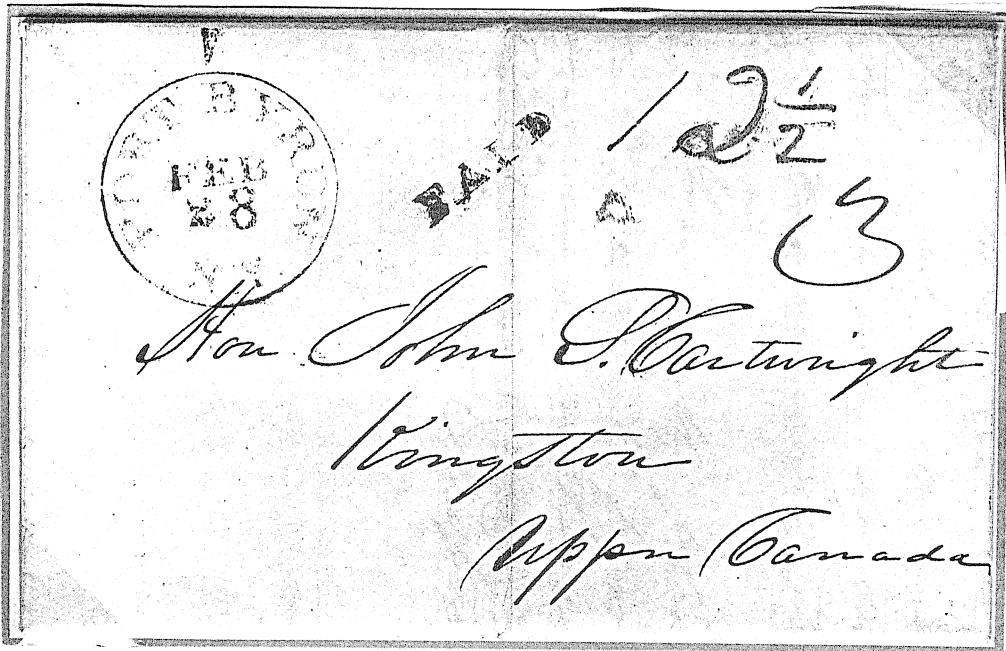 PORT BYRON
FEB
28
N.Y.
PAID
12 1/2
3
Hon John S. Cartwright
Kingston
Upper Canada